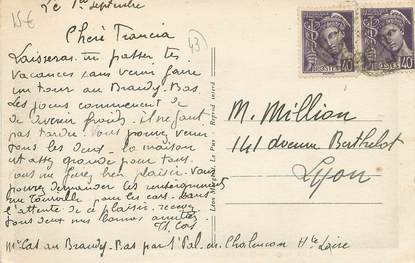 15€
Le 1er septembre
43
Cheré Francia
Laisseras-tu passer tes
vacances sans venir faire
un tour au Brandy-Bas.
Les jours commencent de
devenir froids, il ne faut
pas tarder. Vous pouvez venir
tous les deux. la maison
et assez grande pour tous.
vous me ferez bien plaisir. Vous
pouvez demander les renseignements
pour les cars. Dans
l'attente de ce plaisir. recevez
tous deux nos bonnes amitiés
M. Cos
Mme Cos au Brandy-Bas par St Pal-en-Chalencon Hte Loire
Léon Margerit, Le Puy - Reprod. interd.
POSTES 40
POSTES 40
M. Million
141 avenue Berthelot
Lyon